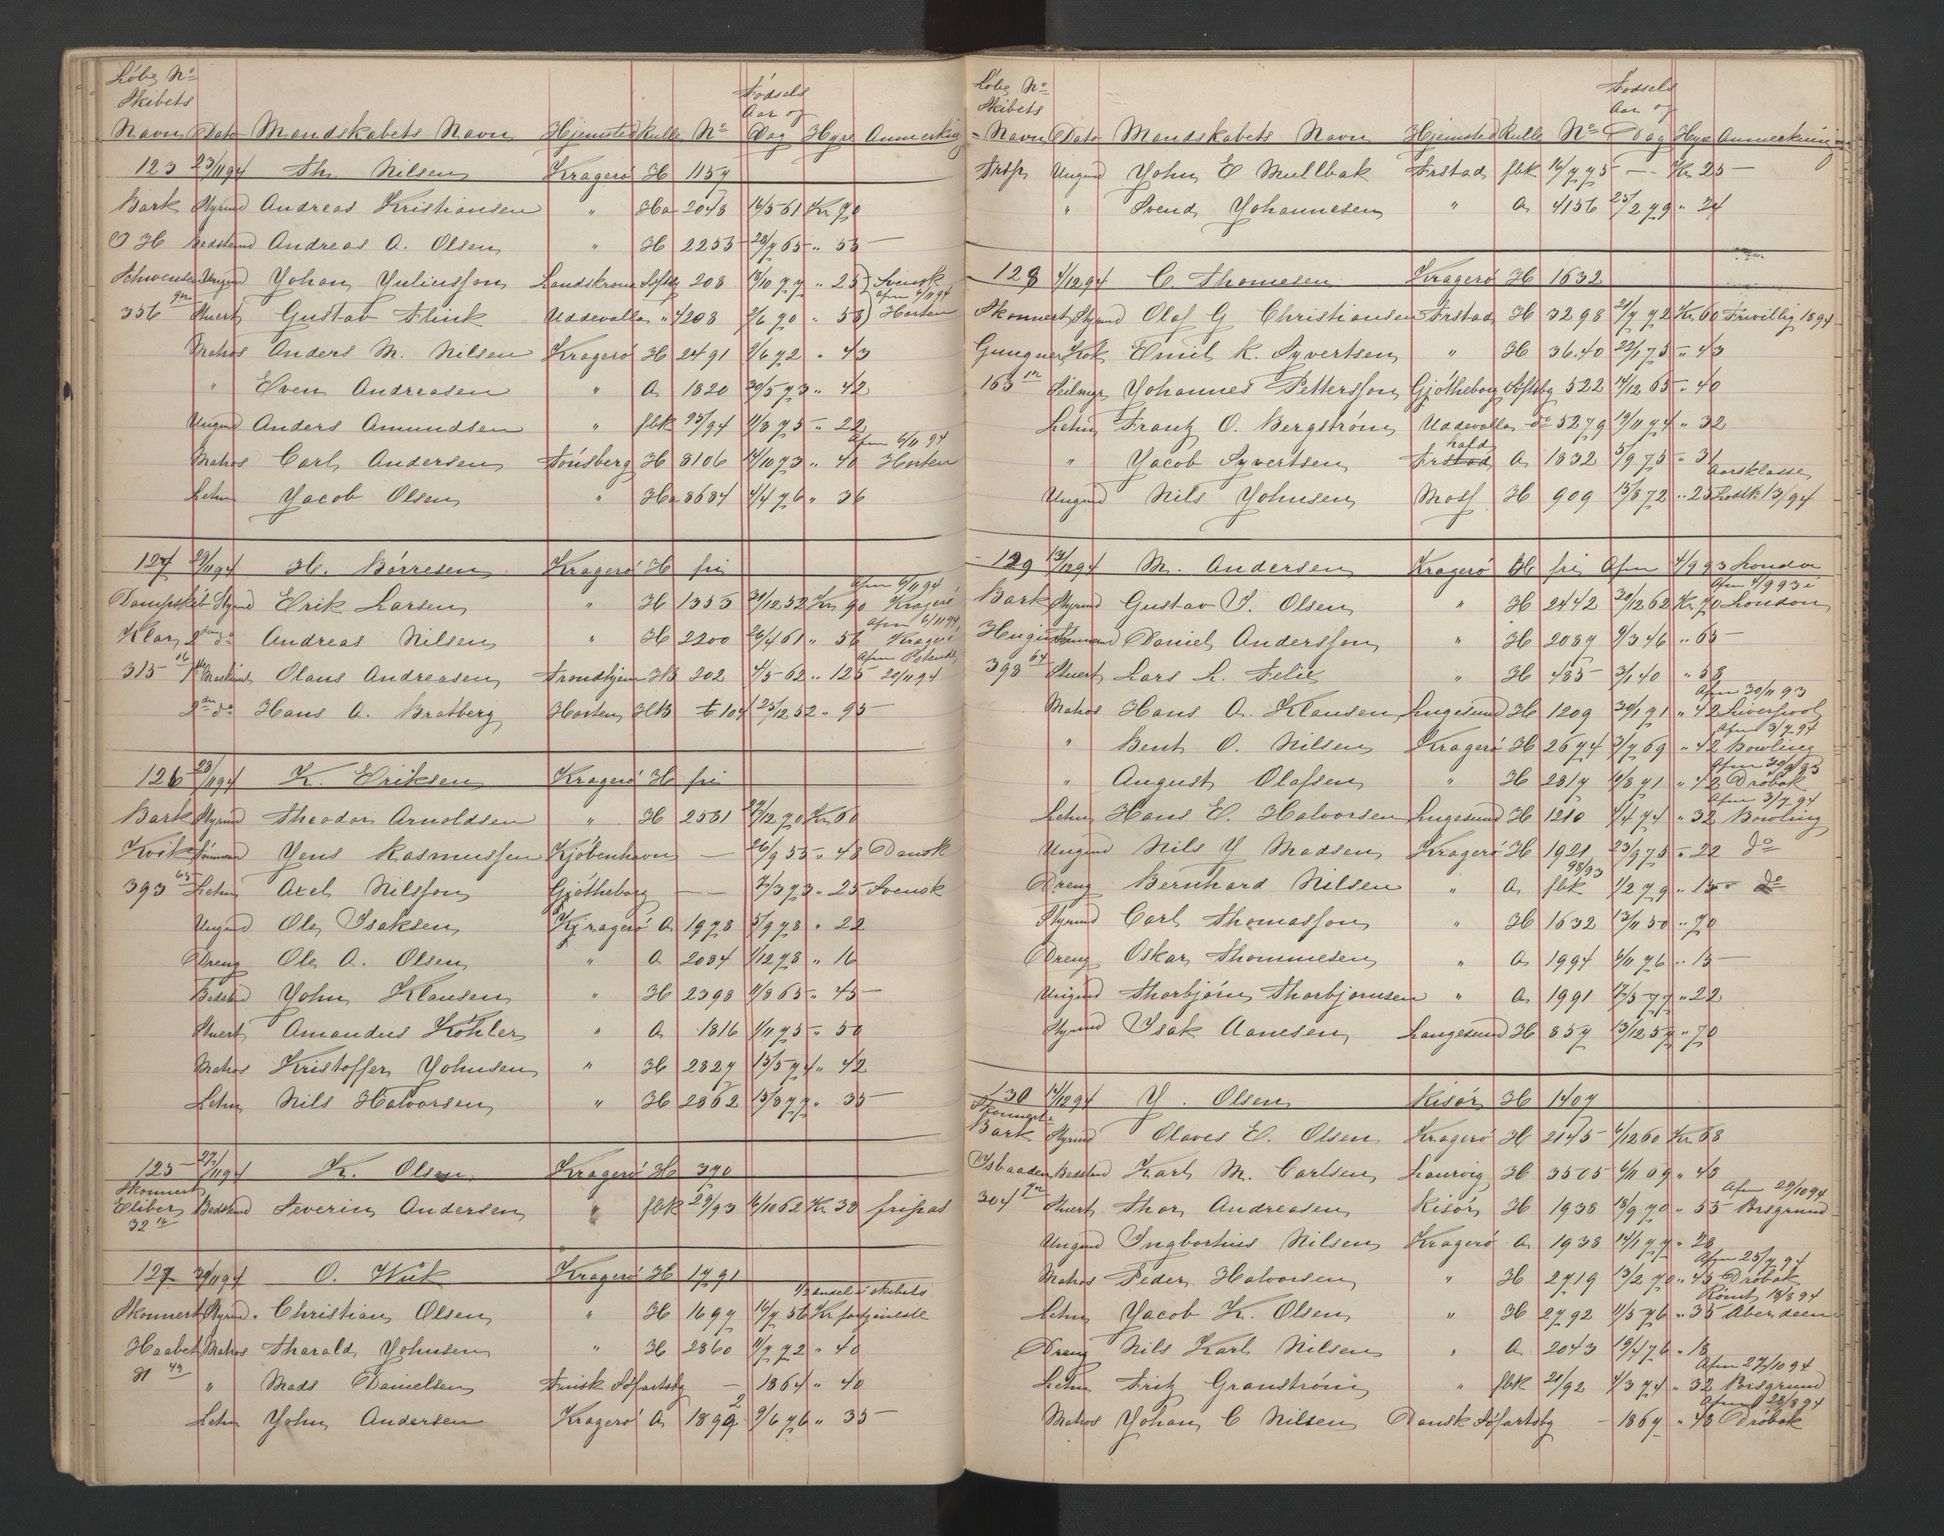 Løbe No
Skibets
Navn Dato Mandskabets Navn Hjemsted Rulle No Fødsels Aar og Dag Hyre Anmerkning
123 23/11 94 Th. Nilsen Kragerø H 1157
Bark Styrmd Andreas Kristiansen " Ha 2048 16/5 61 Kr 70
O H Bedstmd Andreas A. Olsen " H 2253 28/7 65 " 53
Schwensen Ungmd Yohan Yuliusson Landskrona 208 13/10 77 " 25 Svensk
356 Stuert Gustav Flink Uddevalla 4208 2/6 70 " 58 Afm 6/11 94 Horten
Matros Anders M. Nilsen Kragerø H 2491 9/6 72 " 43
" Even Andreasen " A 1820 30/5 73 " 42
Ungmd Anders Amundsen " fbk 25/94 11/8 75 " 22
Matros Carl Andersen Tønsberg H 8106 14/10 73 " 40 Afm 6/11 94 Horten
Letm Yacob Olsen " Ha 8684 4/4 76 " 36
124 29/11 94 H. Børresen Kragerø H fri
Dampskib Styrmd Erik Larsen " H 1353 31/12 52 Kr 90 Afm 6/11 94 Kragerø
Klar 2den do Andreas Nilsen " H 2200 26/4 61 " 56 Afm 6/11 94 Kragerø
315 1ste Maskinist Olaus Andreasen Trondhjem HB 202 4/5 62 " 125 20/11 94
2den do Hans A. Bratberg Horten HB t 104 25/12 52 " 95
126 28/11 94 K. Eriksen Kragerø H fri
Bark Styrmd Theodor Arnoldsen " H 2531 27/12 70 Kr 60
Kvik Tømmermd Yens Rasmussen Kjøbenhavn — 26/9 55 " 48 Dansk
393 65 Letm Axel Nilsson Gjøtheborg — 7/3 73 " 25 Svensk
Ungmd Ole Isaksen Kragerø A 1978 5/9 78 " 22
Dreng Ole A. Olsen " A 2084 1/12 78 " 16
Bedstmd Yohn Klausen " H 2398 9/8 65 " 45
Stuert Amandus Køhler " A 1816 1/11 75 " 50
Matros Kristoffer Yohnsen " H 2827 15/5 74 " 42
Letm Nils Halvorsen " H 2862 13/8 77 " 35
125 27/11 94 K. Olsen Kragerø H 370
Skonnert
Eliber Bedstmd Severin Andersen " fbk 29/93 16/10 62 Kr 38 fripas
32
127 30/11 94 O. Wiik Kragerø H 1791
Skonnert Styrmd Christian Olsen " H 1697 16/7 56 Kr 1/2 andel i skibets fortjeneste
Haabet Matros Tharald Yohnsen " H 2860 11/7 72 " 40
91 49 " Mads Danielsen Finsk Søfartsby — 1864 " 40
Letm Yohn Andersen Kragerø A 1892 9/6 76 " 35
Løbe No
Skibets
Navn Dato Mandskabets Navn Hjemsted Rulle No Fødsels Aar og Dag Hyre Anmerkning
Trsp Ungmd Yohn E Mullbak Frstad fbk 16/7 75 — Kr 25
" Svend Yohannesen " A 4156 25/2 79 " 24
128 4/12 94 C. Thomesen Kragerø H 1632
Skonnert Styrmd Olaf G Christiansen Frstad H 3298 21/7 72 Kr 60 Frivillig 1894
Gungner Kok Emil K. Syvertsen " H 3640 22/1 75 " 43
163 Seilmgr Yohannes Pettersson Gjøtheborg Søftsby 522 14/12 65 " 40
Letm Frantz O. Bergstrøm Uddevalla do 5279 19/11 74 " 32
" Yacob Syvertsen Frhald A 1832 5/9 75 " 31
Ungmd Nils Yohnsen Moss H 909 15/8 72 " 25 Aarsklasse Lodtk 13/94
129 13/12 94 M. Andersen Kragerø H fri Afm 4/9 93 London
Bark Styrmd Gustav I. Olsen " H 2442 30/12 62 Kr 70 Afm 4/9 93 i London
Hugin Tømmermd Daniel Andersson " H 2087 9/3 46 " 65
398 64 Stuert Lars L. Felix " H 485 3/1 40 " 58
Matros Hans A. Klausen Langesund H 1209 30/1 71 " 42 Afm 30/11 93 Liverpool
" Bent O. Nilsen Kragerø H 2674 3/7 69 " 42 Afm 3/7 94 Bowling
" August Olafsen " H 2817 10/8 71 " 42 Afm 30/9 93 Drøbak
Letm Hans E. Halvorsen Langesund H 1210 1/4 74 " 32 Afm 3/7 94 Bowling
Ungmd Nils Y Madsen Kragerø H 1921 23/9 75 " 22 do
Dreng Bernhard Nilsen " A fbk 98/93 1/2 79 " 15 do
Styrmd Carl Thomassen " H 1632 13/11 50 " 70
Dreng Oskar Thommesen " A 1994 6/11 76 " 15
Ungmd Thorbjørn Thorbjørnsen " A 1991 17/5 77 " 22
Styrmd Isak Aanesen Langesund H 857 13/12 57 " 70
130 14/12 94 Y. Olsen Risør H 1407
Skonnert
Bark Styrmd Olaves E. Olsen Kragerø H 2145 6/12 60 Kr 68
Isbaaden Bedstmd Karl M. Carlsen Laurvig H 3505 6/11 09 " 48
304 Stuert Thor Andreasen Risør H 1938 18/9 70 " 55 Afm 29/10 94 Porsgrund
Ungmd Ingbortius Nilsen Kragerø A 1938 14/1 77 " 28
Matros Peder Halvorsen " H 2719 13/2 70 " 45 Afm 25/7 94 Drøbak
Letm Yacob K. Olsen " H 2792 11/5 76 " 35 Rømt 18/8 94 Aberdeen
Dreng Nils Karl Nilsen " A 2043 19/4 76 " 18
Letm Fritz Granstrøm " fbk 21/92 4/3 74 " 32 Afm 27/10 94 Porsgrund
Matros Yohan C Nilsen Dansk Søfartsby — 1867 " 48 Afm 28/8 94 Drøbak